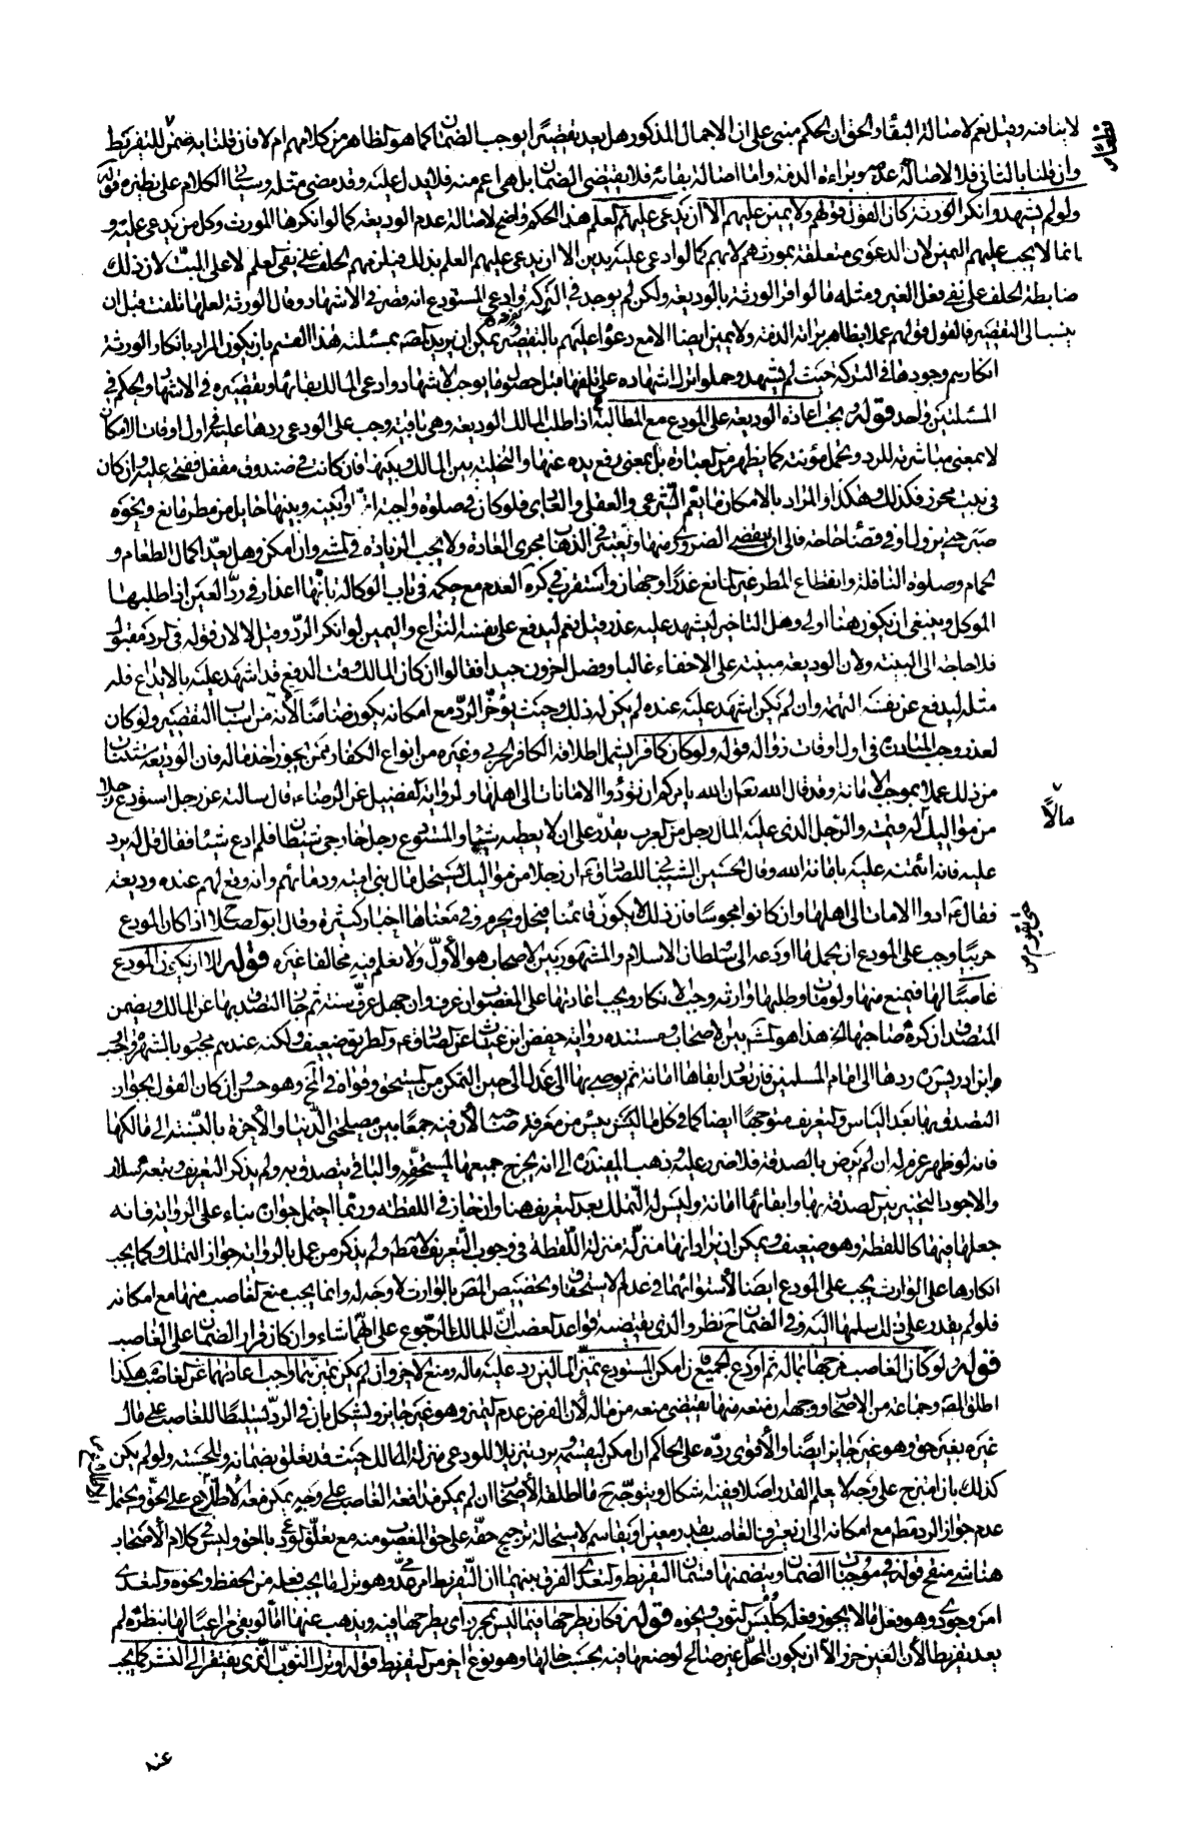 لا ينافيه وقيل نعم لاصالة البقاء والحق ان الحكم مبنى على ان الاجمال المذكور هل يعد تقصيرا يوجب الضمان كما هو الظاهر من كلامهم ام لا فان قلنا به ضمن للتفريط
وان قلنا بالثانى فلا لاصالة عدمه وبراءة الذمة واما اصالة بقائه فلا يقتضى الضمان بل هى اعم منه فلا يدل عليه وقد مضى مثله وسياتى الكلام على نظيره قوله
ولو لم يشهد وانكر الورثة كان القول قولهم ولا يمين عليهم الا ان يدعى عليهم العلم هذا الحكم واضح لاصالة عدم الوديعة كما لو انكرها المورث وكل من يدعى عليه و
انما لا يجب عليهم اليمين لان الدعوى متعلقة بمورثهم لا بهم كما لو ادعى عليه بدين الا ان يدعى عليهم العلم بذلك فيلزمهم الحلف على نفى العلم لا على البت لان ذلك
ضابطة الحلف على نفى فعل الغير ومثله ما لو اقر الورثة بالوديعة ولكن لم يوجد فى التركة وادعى المستودع انه قصر فى الاشهاد وقال الورثة لعلها تلفت قبل ان
ينسب الى التقصير فالقول قولهم عملا بظاهر براءة الذمة ولا يمين ايضا الا مع دعواه عليهم بالتقصير ويمكن ان يريد المصه بمسئلته هذا القسم بان يكون المراد بانكار الورثة
انكارهم وجودها فى التركة حيث لم يشهد وحملوا ترك اشهاده على تلفها قبل حصول ما يوجب الاشهاد وادعى المالك بقائها وتقصيره فى الاشهاد والحكم فى
المسئلتين واحد قوله ويجب اعادة الوديعة على المودع مع المطالبة اذا طلب المالك الوديعة وهى باقية وجب على الودعى ردها عليه فى اول اوقات الامكان
لا بمعنى مباشرته للرد وتحمل مؤنته كما يظهر من العبارة بل بمعنى رفع يده عنها والتخلية بين المالك وبينها فان كانت فى صندوق مقفل ففتحه عليه وان كان
فى بيت محرز فكذلك وهكذا والمراد بالامكان ما يعم الشرعى والعقلى والعادى فلو كان فى صلوة واجبة اتمها او بينه وبينها حايل من مطر مانع ونحوه
صبر حتى يزول او فى قضاء حاجة فالى ان ينقضى الضرورى منها ويعتبر فى الذهاب مجرى العادة ولا يجب الزيادة فى المشى وان امكن وهل يعد اكمال الطعام و
الحمام وصلوة النافلة وانقطاع المطر غير المانع عذرا وجهان واستقرب فى كره العدم مع حكمه فى باب الوكالة بانها اعذار فى رد العين اذا طلبها
الموكل وينبغى ان يكون هنا اولى وهل التاخير ليشهد عليه عذر قيل نعم ليدفع عن نفسه النزاع واليمين لو انكر الرد وقيل لا لان قوله فى الرد مقبول
فلا حاجة الى البينة ولان الوديعة مبنية على الاخفاء غالبا وفصل اخرون جيدا فقالوا ان كان المالك وقت الدفع قد اشهد عليه بالايداع فله
مثله ليدفع عن نفسه التهمة وان لم يكن اشهد عليه عنده لم يكن له ذلك وحيث يؤخر الرد مع امكانه يكون ضامنا لانه من اسباب التقصير ولو كان
لعذر وجب المبادرة فى اول اوقات زواله قوله ولو كان كافرا يشمل اطلاقه الكافر الحربى وغيره من انواع الكفار ممن يجوز اخذ ماله فان الوديعة مستثناة
من ذلك عملا بموجب الامانة وقد قال الله تعالى ان الله يامركم ان تؤدوا الامانات الى اهلها ولرواية الفضيل عن الرضاء قال سالته عن رجل استودع رجلا
من مواليك له قيمة والرجل الذى عليه المال رجل من العرب يقدر على ان لا يعطيه شيئا والمستودع رجل خارجى شيطان فلم ادع شيئا فقال قل له يرد
عليه فانه ائتمنه عليه بامانة الله وقال الحسين الشيبانى للصادق ع ان رجلا من مواليك يستحل مال بنى امية ودمائهم وانه وقع لهم عنده وديعة
فقال ع ادوا الامانات الى اهلها وان كانوا مجوسا فان ذلك لا يكون قائمنا فيحل ويحرم وفى معناها اخبار كثيرة وقال ابو الصلاح اذا كان المودع
حربيا وجب على المودع ان يحمل ما اودعه الى سلطان الاسلام والمشهور بين الاصحاب هو الاول ولا نعلم فيه مخالفا غيره قوله الا ان يكون المودع
غاصبا لها فيمنع منها ولو مات وطلبها وارثه وجب الانكار ويجب اعادتها على المغصوب ان عرف وان جهل عرفت سنة ثم جاز التصدق بها عن المالك ويضمن
المتصدق ان كره صاحبها الخ هذا هو المشهور بين الاصحاب ومستنده رواية حفص بن غياث عن الصادق ع والطريق ضعيف ولكنه عندهم مجبور بالشهرة واوجب
ابن ادريس ره ردها الى امام المسلمين فان تعذر ابقاها امانة ثم يوصى بها الى عدل الى حين التمكن من المستحق وقواه فى الخ وهو حسن وان كان القول بجواز
التصدق بها بعد الياس والتعريف متوجها ايضا كما فى كل مال يئس من معرفة صاحبه لان فيه جمعا بين مصلحتى الدنيا والاخرة بالنسبة الى مالكها
فانه لو ظهر غرم له ان لم يرض بالصدقة فلا ضرر عليه وذهب المفيد ره الى انه يخرج خمسها لمستحقه والباقى يتصدق به ولم يذكر التعريف وتبعه سلار
والاجود التخيير بين الصدقة بها وابقائها امانة وليس له التملك بعد التعريف هنا وان جاز فى اللقطة وربما احتمل جوازه بناء على الرواية فانه
جعلها فيها كاللقطة وهو ضعيف ويمكن ان يراد انها منزلة منزلة اللقطة فى وجوب التعريف لا فقط ولم يذكر من عمل بالرواية جواز التملك وكما يجب
انكارها على الوارث يجب على المودع ايضا لاستوائهما فى عدم الاستحقاق وتخصيص المص بالوارث لا وجه له وانما يجب منع الغاصب منها مع امكانه
فلو لم يقدر على ذلك سلمها اليه وفى الضمان ح نظر والذى يقتضيه قواعد الغصب ان للمالك الرجوع على ايهما شاء وان كان قرار الضمان على الغاصب
قوله ولو كان الغاصب مزجها بماله ثم اودع الجميع فان امكن المستودع تمييز المالين رد عليه ماله ومنع الاخر وان لم يمكن تمييزهما وجب اعادتهما على الغاصب هكذا
اطلق المصه وجماعة من الاصحاب ووجهه ان منعه منها يقتضى منعه من ماله لان الفرض عدم التميز وهو غير جايز ويشكل بان فى الرد تسليطا للغاصب على مال
غيره بغير حق وهو غير جايز ايضا والاقوى رده على الحاكم ان امكن ليقسمه ويرد تنزيلا للودعى منزلة المالك حيث قد تعلق بضمانه وللحسبة ولو لم يكن
كذلك بان امتزج على وجه لا يعلم القدر اصلا ففيه اشكال ويتوجه ح ما اطلقه الاصحاب ان لم يمكن مدافعة الغاصب على وجه يمكن معه الاطلاع على الحق ويحتمل
عدم جواز الرد مط مع امكانه الى ان يعترف الغاصب بقدر معين او يقاسم لاستحالة ترجيح حقه على حق المغصوب منه مع تعلق الودعى بالحق وليس فى كلام الاصحاب
هنا شىء منقح قوله فى موجبات الضمان وينتظمها قسمان التفريط والتعدى الفرق بينهما ان التفريط امر عدمى وهو ترك ما يجب فعله من الحفظ ونحوه والتعدى
امر وجودى وهو فعل ما لا يجوز فعله كلبس الثوب ونحوه قوله فكان يطرحها فيما ليس بحرز اى يطرحها فيه ويذهب عنها اما لو بقى مراعيا لها بنظره لم
يعد تفريطا لان العين حرز الا ان يكون المحل غير صالح لوضعها فيه بحسب حالها وهو نوع اخر من التفريط قوله او ترك الثوب الذى يفتقر الى النشر كما يجب
مالا
عند